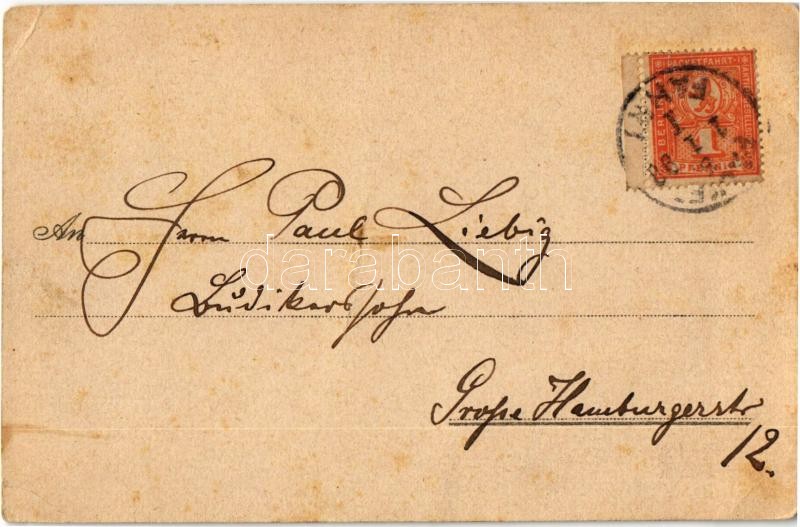 PACKETFAHRT
BERLIN
1
An Herrn Paul Liebig
Budikerssohn
Große Hamburgerstr
12.
darabanth